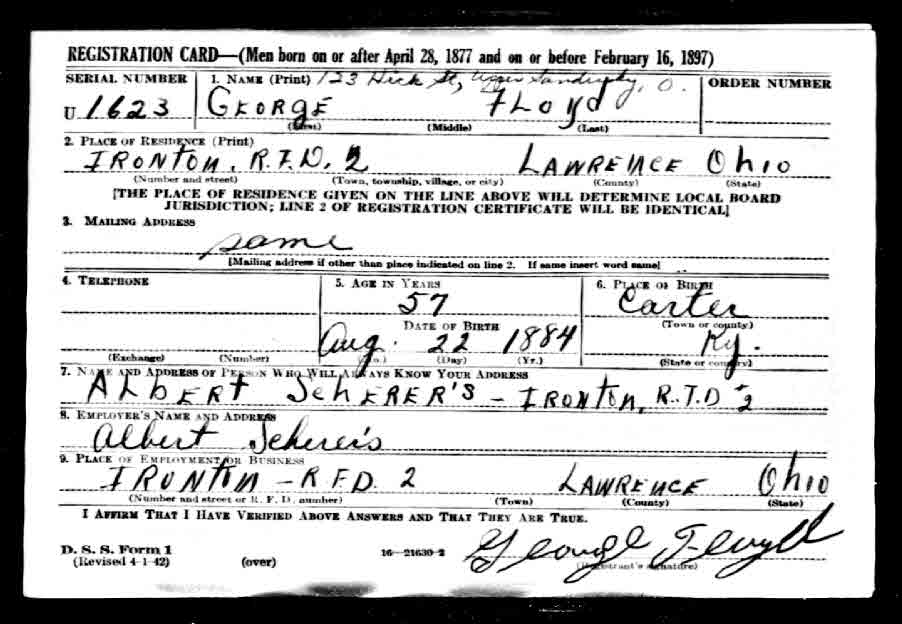 REGISTRATION CARD—(Men born on or after April 28, 1877 and on or before February 16, 1897)
SERIAL NUMBER 1. NAME (Print) 123 Hick St, Upper Sandusky, O. ORDER NUMBER
U 1623 GEORGE FLOYD
(First) (Middle) (Last)
2. PLACE OF RESIDENCE (Print)
IRONTON. R.F.D. 2 LAWRENCE Ohio
(Number and street) (Town, township, village, or city) (County) (State)
[THE PLACE OF RESIDENCE GIVEN ON THE LINE ABOVE WILL DETERMINE LOCAL BOARD
JURISDICTION; LINE 2 OF REGISTRATION CERTIFICATE WILL BE IDENTICAL]
3. MAILING ADDRESS
same
[Mailing address if other than place indicated on line 2. If same insert word same]
4. TELEPHONE 5. AGE IN YEARS 6. PLACE OF BIRTH
57 Carter
DATE OF BIRTH (Town or county)
Aug. 22 1884 Ky.
(Exchange) (Number) (Mo.) (Day) (Yr.) (State or country)
7. NAME AND ADDRESS OF PERSON WHO WILL ALWAYS KNOW YOUR ADDRESS
ALBERT ScHERER'S – IRONTON, R.F.D 2
8. EMPLOYER'S NAME AND ADDRESS
Albert Scherer's
9. PLACE OF EMPLOYMENT OR BUSINESS
IRONTON – R.F.D. 2 LAWRENCE Ohio
(Number and street or R. F. D. number) (Town) (County) (State)
I AFFIRM THAT I HAVE VERIFIED ABOVE ANSWERS AND THAT THEY ARE TRUE.
D. S. S. Form 1 16—21630-2 George
(Revised 4-1-42) (over) (Registrant's signature)